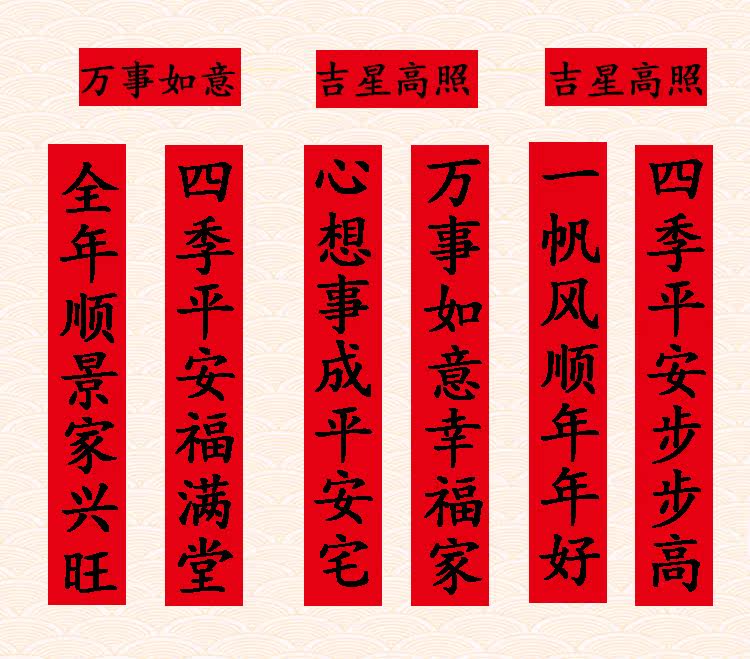 万事如意
全年顺景家兴旺
四季平安福满堂
吉星高照
心想事成平安宅
万事如意幸福家
吉星高照
一帆风顺年年好
四季平安步步高